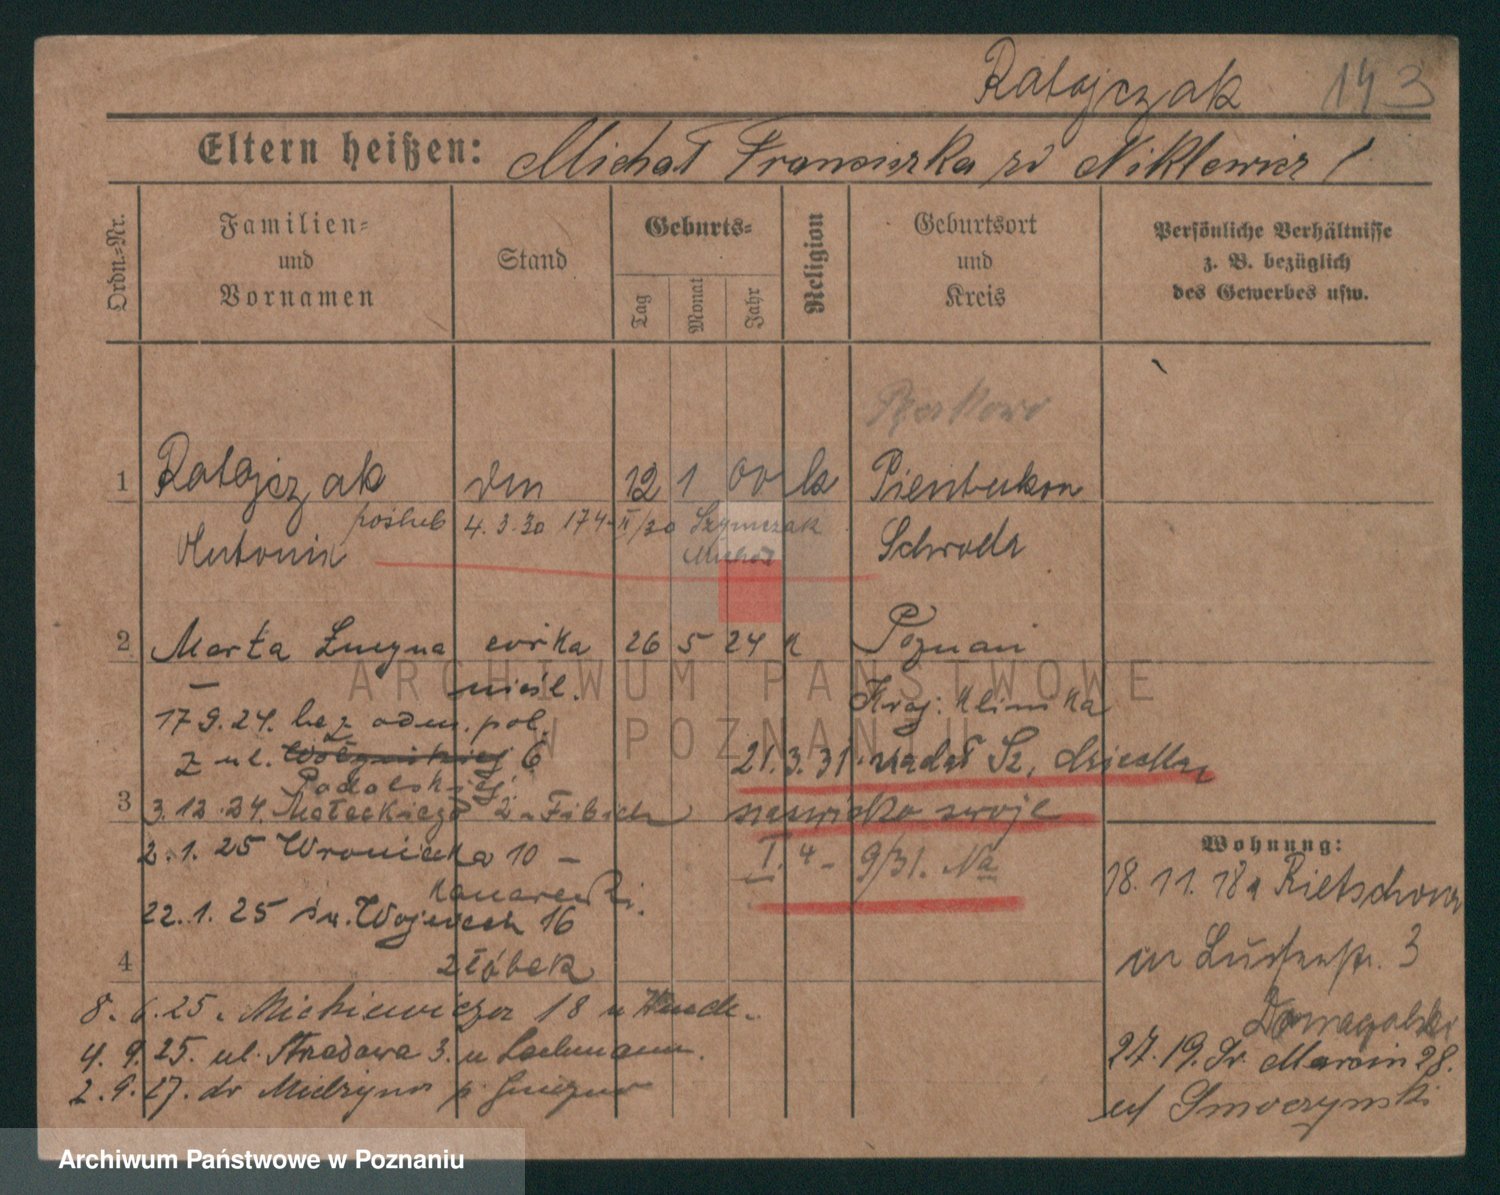 Ratajczak 143
Eltern heißen: Michał Franciszka zd Niklewicz
Ordn.-Nr.
Familien-
und
Vornamen
Stand
Geburts-
Tag
Monat
Jahr
Religion
Geburtsort
und
Kreis
Persönliche Verhältnisse
z. B. bezüglich
des Gewerbes usw.
1 Ratajczak 12 1 00 k
pośłub 4.3.30 174 II/30 Szymczak
Antonie
Schroda
2 Marta Łucyna córka 26 5 24 k Poznań
nieśl.
Kraj. Klinika
17 9.24. bez odm. pol.
z ul. 6
Podolskiej
21.3.31. nadał Sz. dziecku
3
3.12.24. Małeckiego 2 u Fibich nazwisko swoje
I. 4 - 9/31. Na
2.1.25 Wroniecka 10 -
22.1.25 św. Wojciech 16
4
żłóbek
8.6.25. Mickiewicza 18 u
4.9.25. ul. 3. u Lachmann.
2.9.27. do p. Gniezno
Wohnung:
18.11.18 a
3
27.19. Św. Marcin 28.
u/ Smoczyński
ARCHIWUM PAŃSTWOWE
W POZNANIU
Archiwum Państwowe w Poznaniu